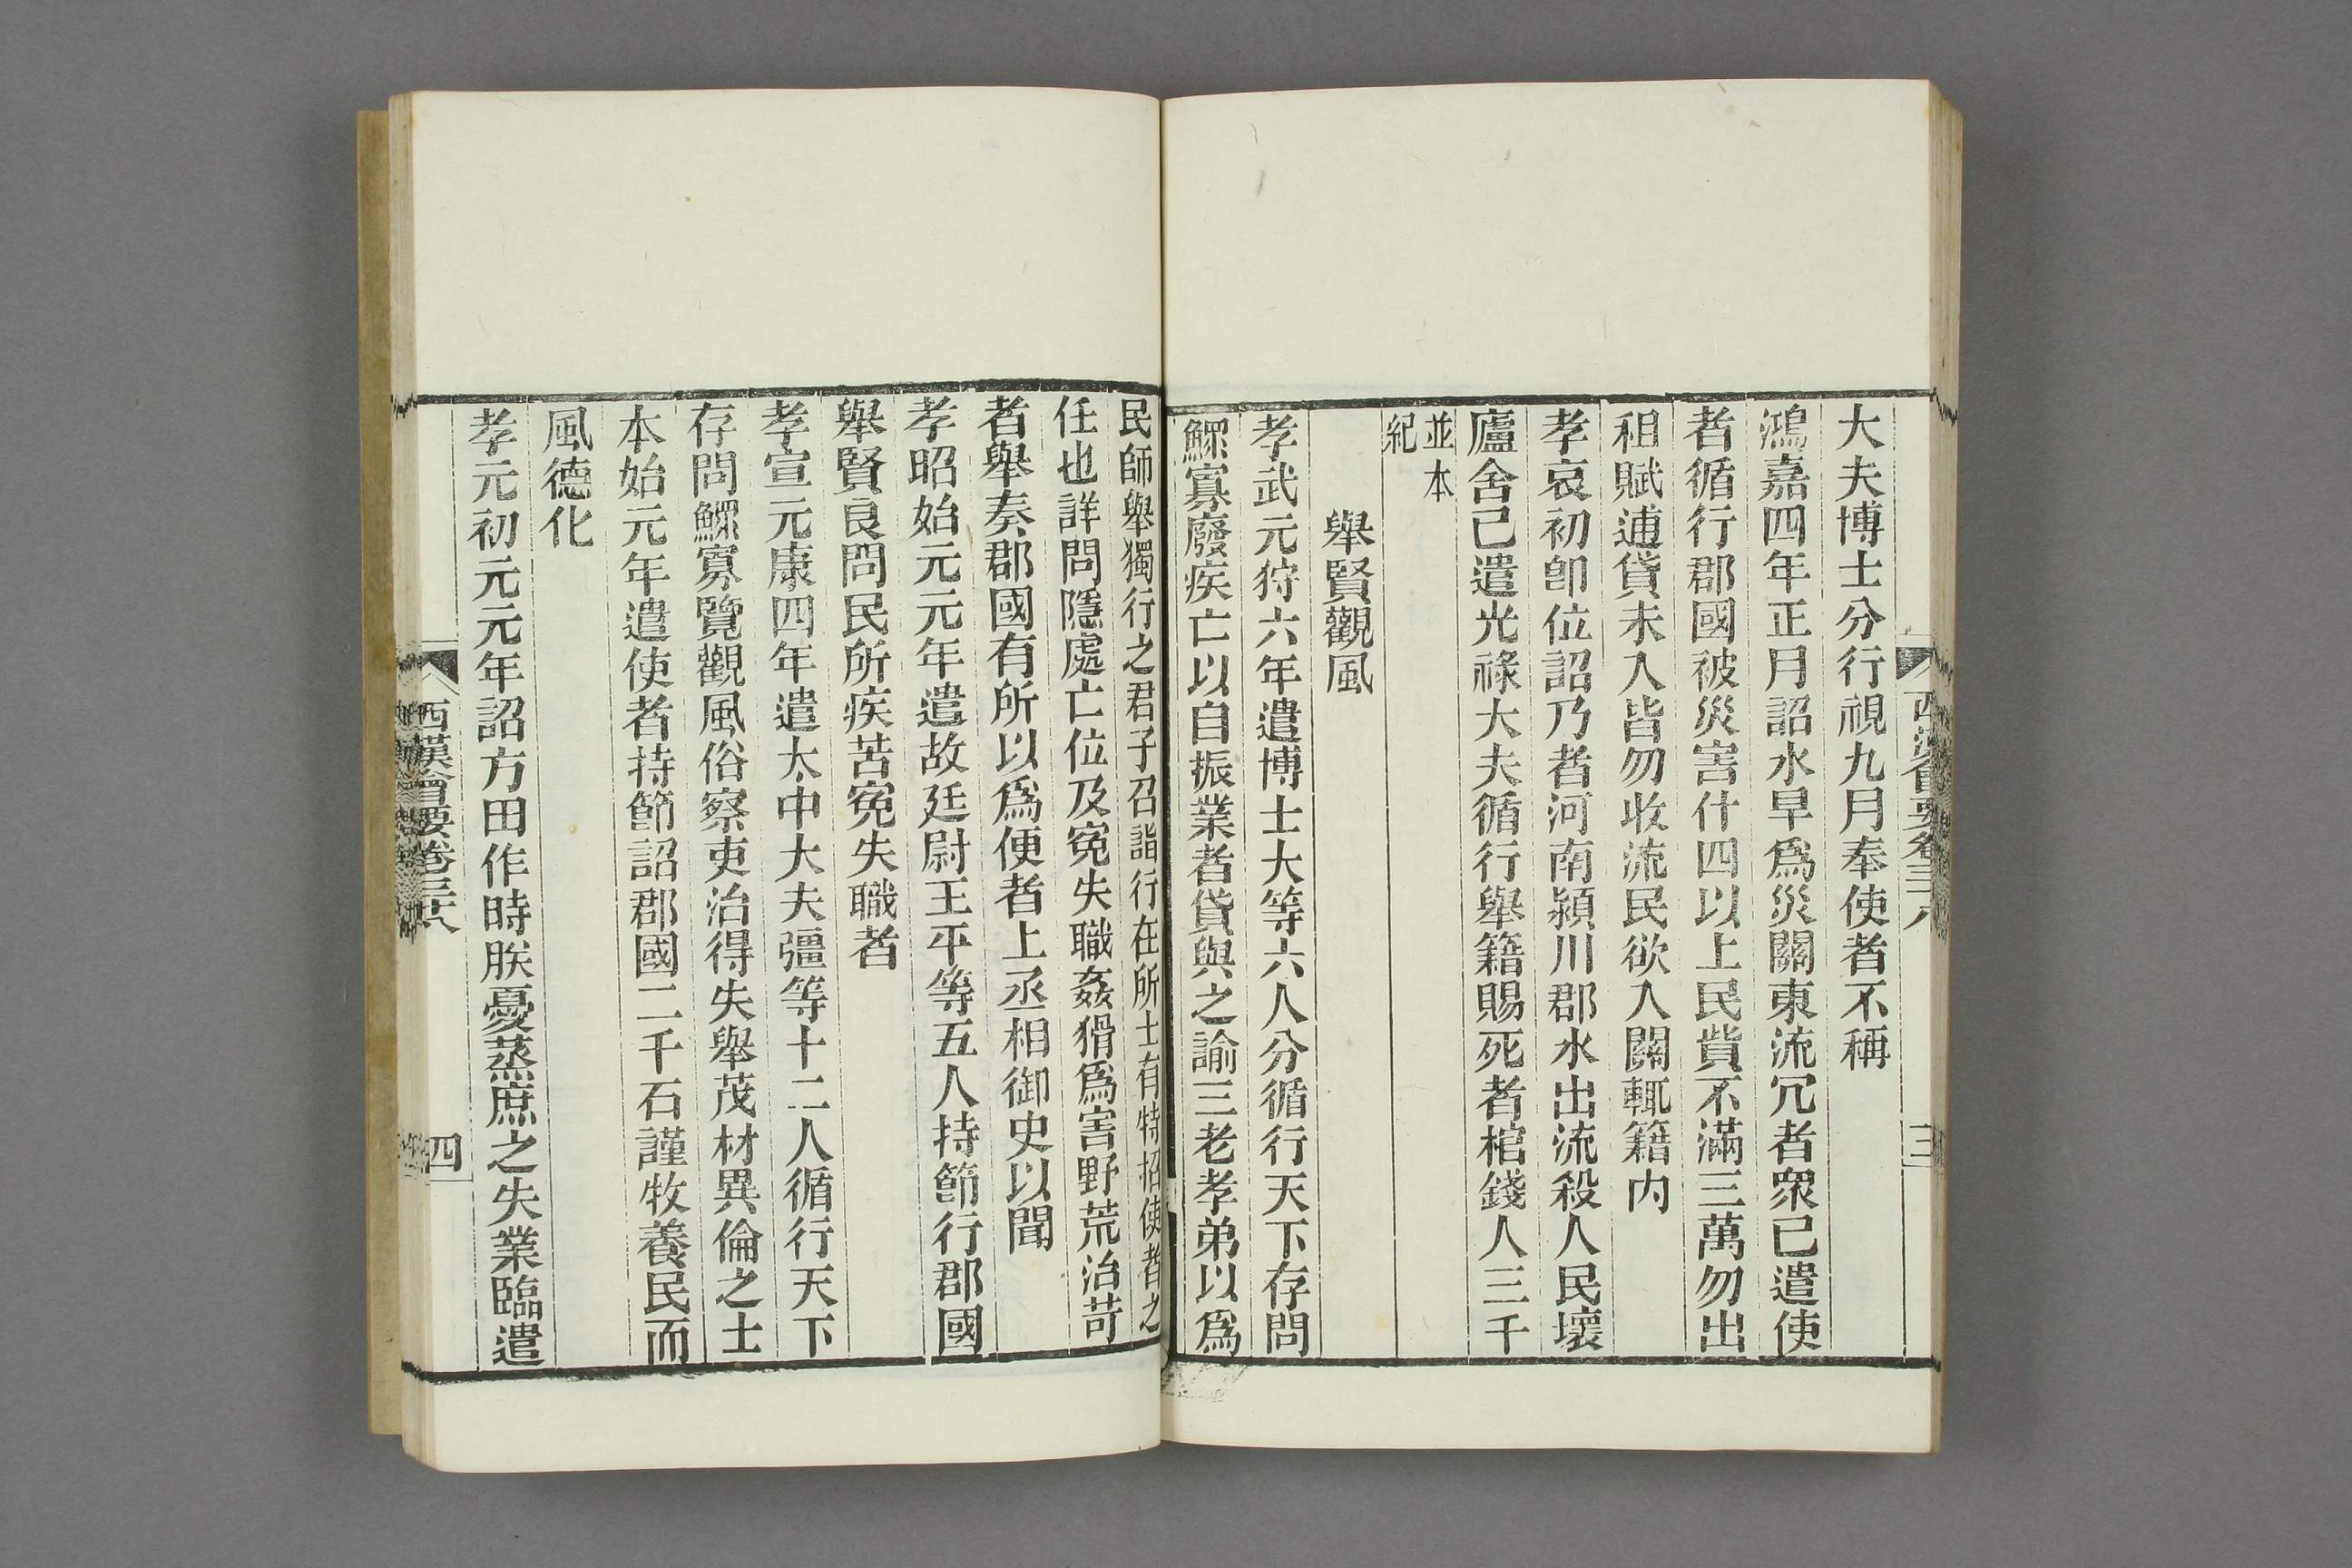 西漢會要卷三十八
三
大夫博士分行視九月奉使者不稱
鴻嘉四年正月詔水旱爲災關東流冗者衆已遣使
者循行郡國被災害什四以上民貲不滿三萬勿出
租賦逋貸未入皆勿收流民欲入關輒籍內
孝哀初卽位詔乃者河南潁川郡水出流殺人民壞
廬舍已遣光祿大夫循行舉籍賜死者棺錢人三千
並本
紀
舉賢觀風
孝武元狩六年遣博士大等六人分循行天下存問
鰥寡廢疾亡以自振業者貸與之諭三老孝弟以爲
民師舉獨行之君子召詣行在所士有特招使者之
任也詳問隱處亡位及寃失職姦猾爲害野荒治苛
者舉奏郡國有所以爲便者上丞相御史以聞
孝昭始元元年遣故廷尉王平等五人持節行郡國
舉賢良問民所疾苦寃失職者
孝宣元康四年遣太中大夫彊等十二人循行天下
存問鰥寡覽觀風俗察吏治得失舉茂材異倫之士
本始元年遣使者持節詔郡國二千石謹牧養民而
風德化
孝元初元元年詔方田作時朕憂蒸庶之失業臨遣
西漢會要卷三十八
四